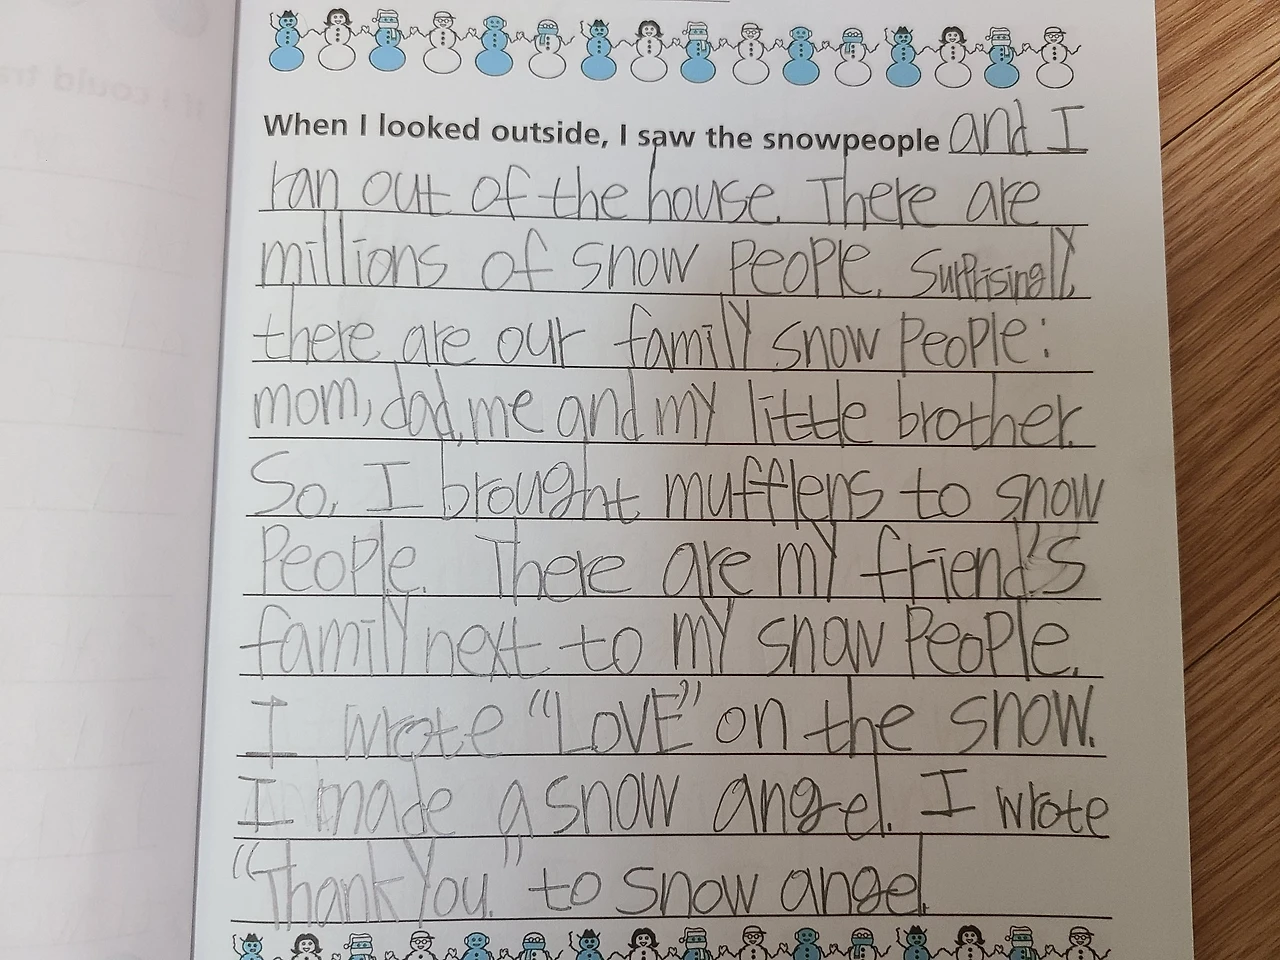 When I looked outside, I saw the snowpeople and I
ran out of the house. There are
millions of snow people. Surprisingly,
there are our family snow people:
mom, dad, me and my little brother.
So, I brought mufflers to snow
people. There are my friend's
family next to my snow people.
I wrote "LOVE" on the snow.
I made a snow angel. I wrote
"Thank You." to snow angel.